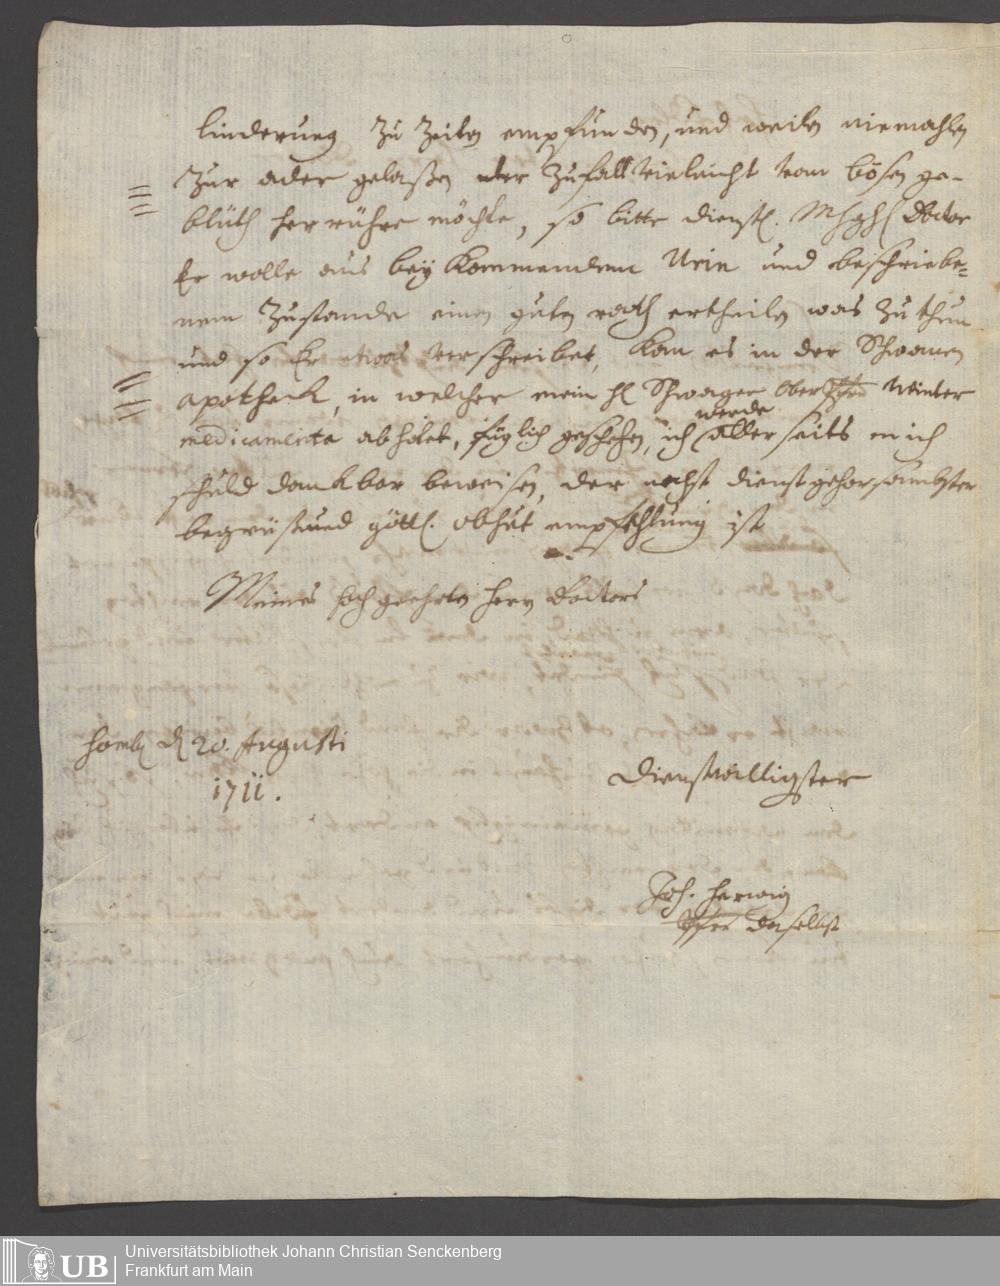 linderung zu Zeiten empfunden, und weilen niemahlen
zur ader gelaßen der Zufall vieleicht vom bösen ge-
blüth herrühre möchte, so bitte dienstl. Mhghl Doctor
Er wolle aus beÿ kommendem Urin und beschriebe-
nem Zustande einen guten rath ertheilen was zu thun
und so Er etwas verschreibet, kan es in der Schwanen
apotheck, in welcher mein hl Schwager Ober Winter
medicamenta abholet, füglich geschehen, ich
werde
allerseits mich
schuld danckbar beweisen, der nechst dienstgehorsambster
begrüs und göttl. obhut empfehlung ist
Meines hochgeehrten Herrn Doctors
homb d 20. Augusti
1711.
Dienstwilligster
Joh. Herwig
Pfrr daselbst
UB Universitätsbibliothek Johann Christian Senckenberg
Frankfurt am Main